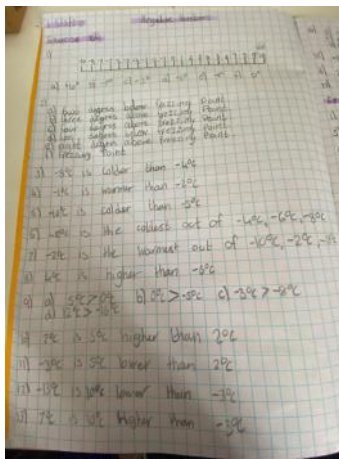 Negative Numbers
1)
2)
a) two degrees below freezing Point
b) three degrees above freezing Point
c) four degrees above freezing Point
d) degrees below freezing Point
e) eight degrees above freezing Point
f) freezing Point
3) -8°C is colder than -4°C
4) is warmer than -2°C
5) -10°C is colder than -5°C
6) -8°C is the coldest out of -4°C, -6°C, -8°C
7) -2°C is the warmest out of -10°C, -2°C,
8) 6°C is higher than -6°C
9) a) 5°C > 0°C b) 0°C > -5°C c) -3°C > -8°C
d) 12°C >
10) 7°C is 5°C higher than 2°C
11) -3°C is 5°C lower than 2°C
12) -13°C is 10°C lower than -3°C
13) 7°C is 10°C higher than -3°C